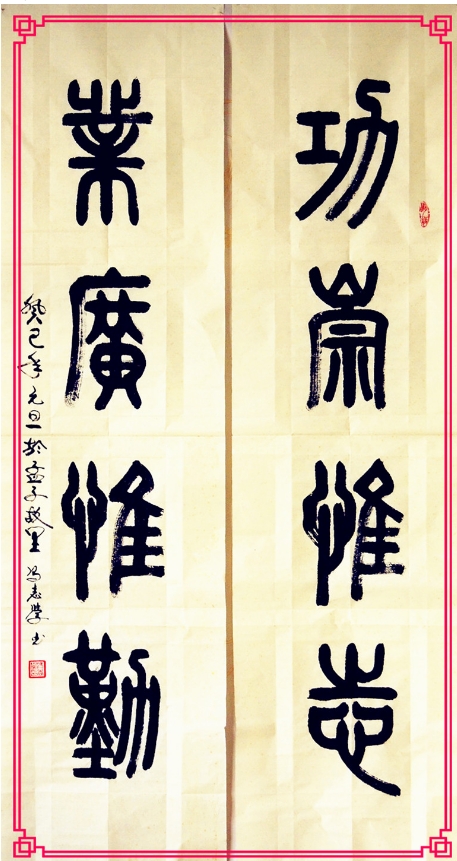 功崇惟志
業廣惟勤
癸巳年元旦於孟子故里 馮志學书